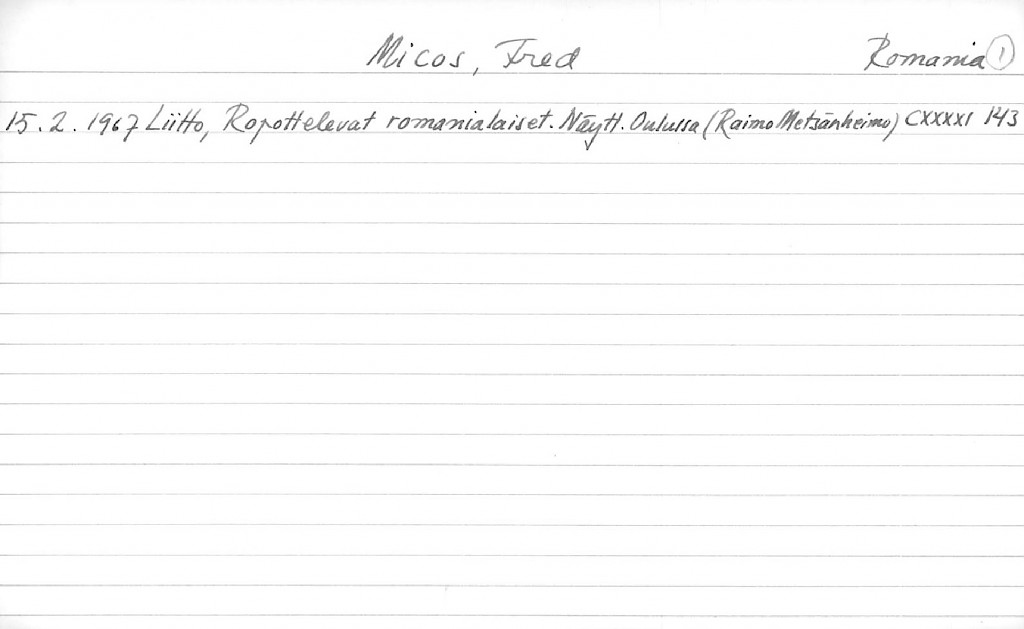 Micos, Fred Romania 1
15.2.1967 Liitto, Ropottelevat romanialaiset. Näytt. Oulussa (Raimo Metsänheimo) CXXXXI 143